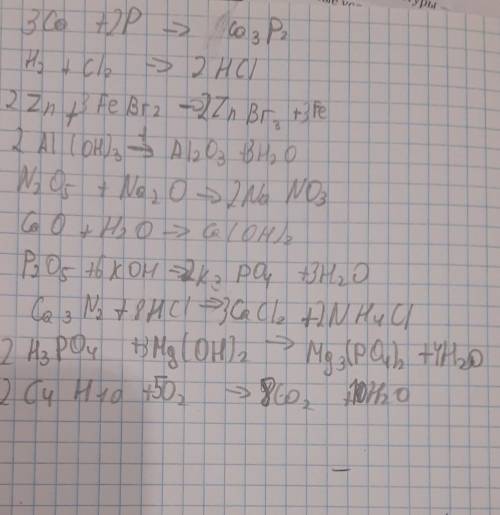 туры
3Ca + 2P → Ca3P2
H2 + Cl2 → 2HCl
2Zn + 3FeBr2 → 2ZnBr3 + 3Fe
2Al(OH)3 t→ Al2O3 3H2O
N2O5 + Na2O → 2NaNO3
CaO + H2O → Ca(OH)2
P2O5 + 6KOH → 2K3PO4 + 3H2O
Ca3N2 + 8HCl → 3CaCl2 + 2NH4Cl
2H3PO4 + 3Mg(OH)2 → Mg3(PO4)2 + 4H2O
2C4H10 + 5O2 → 8CO2 + 10H2O